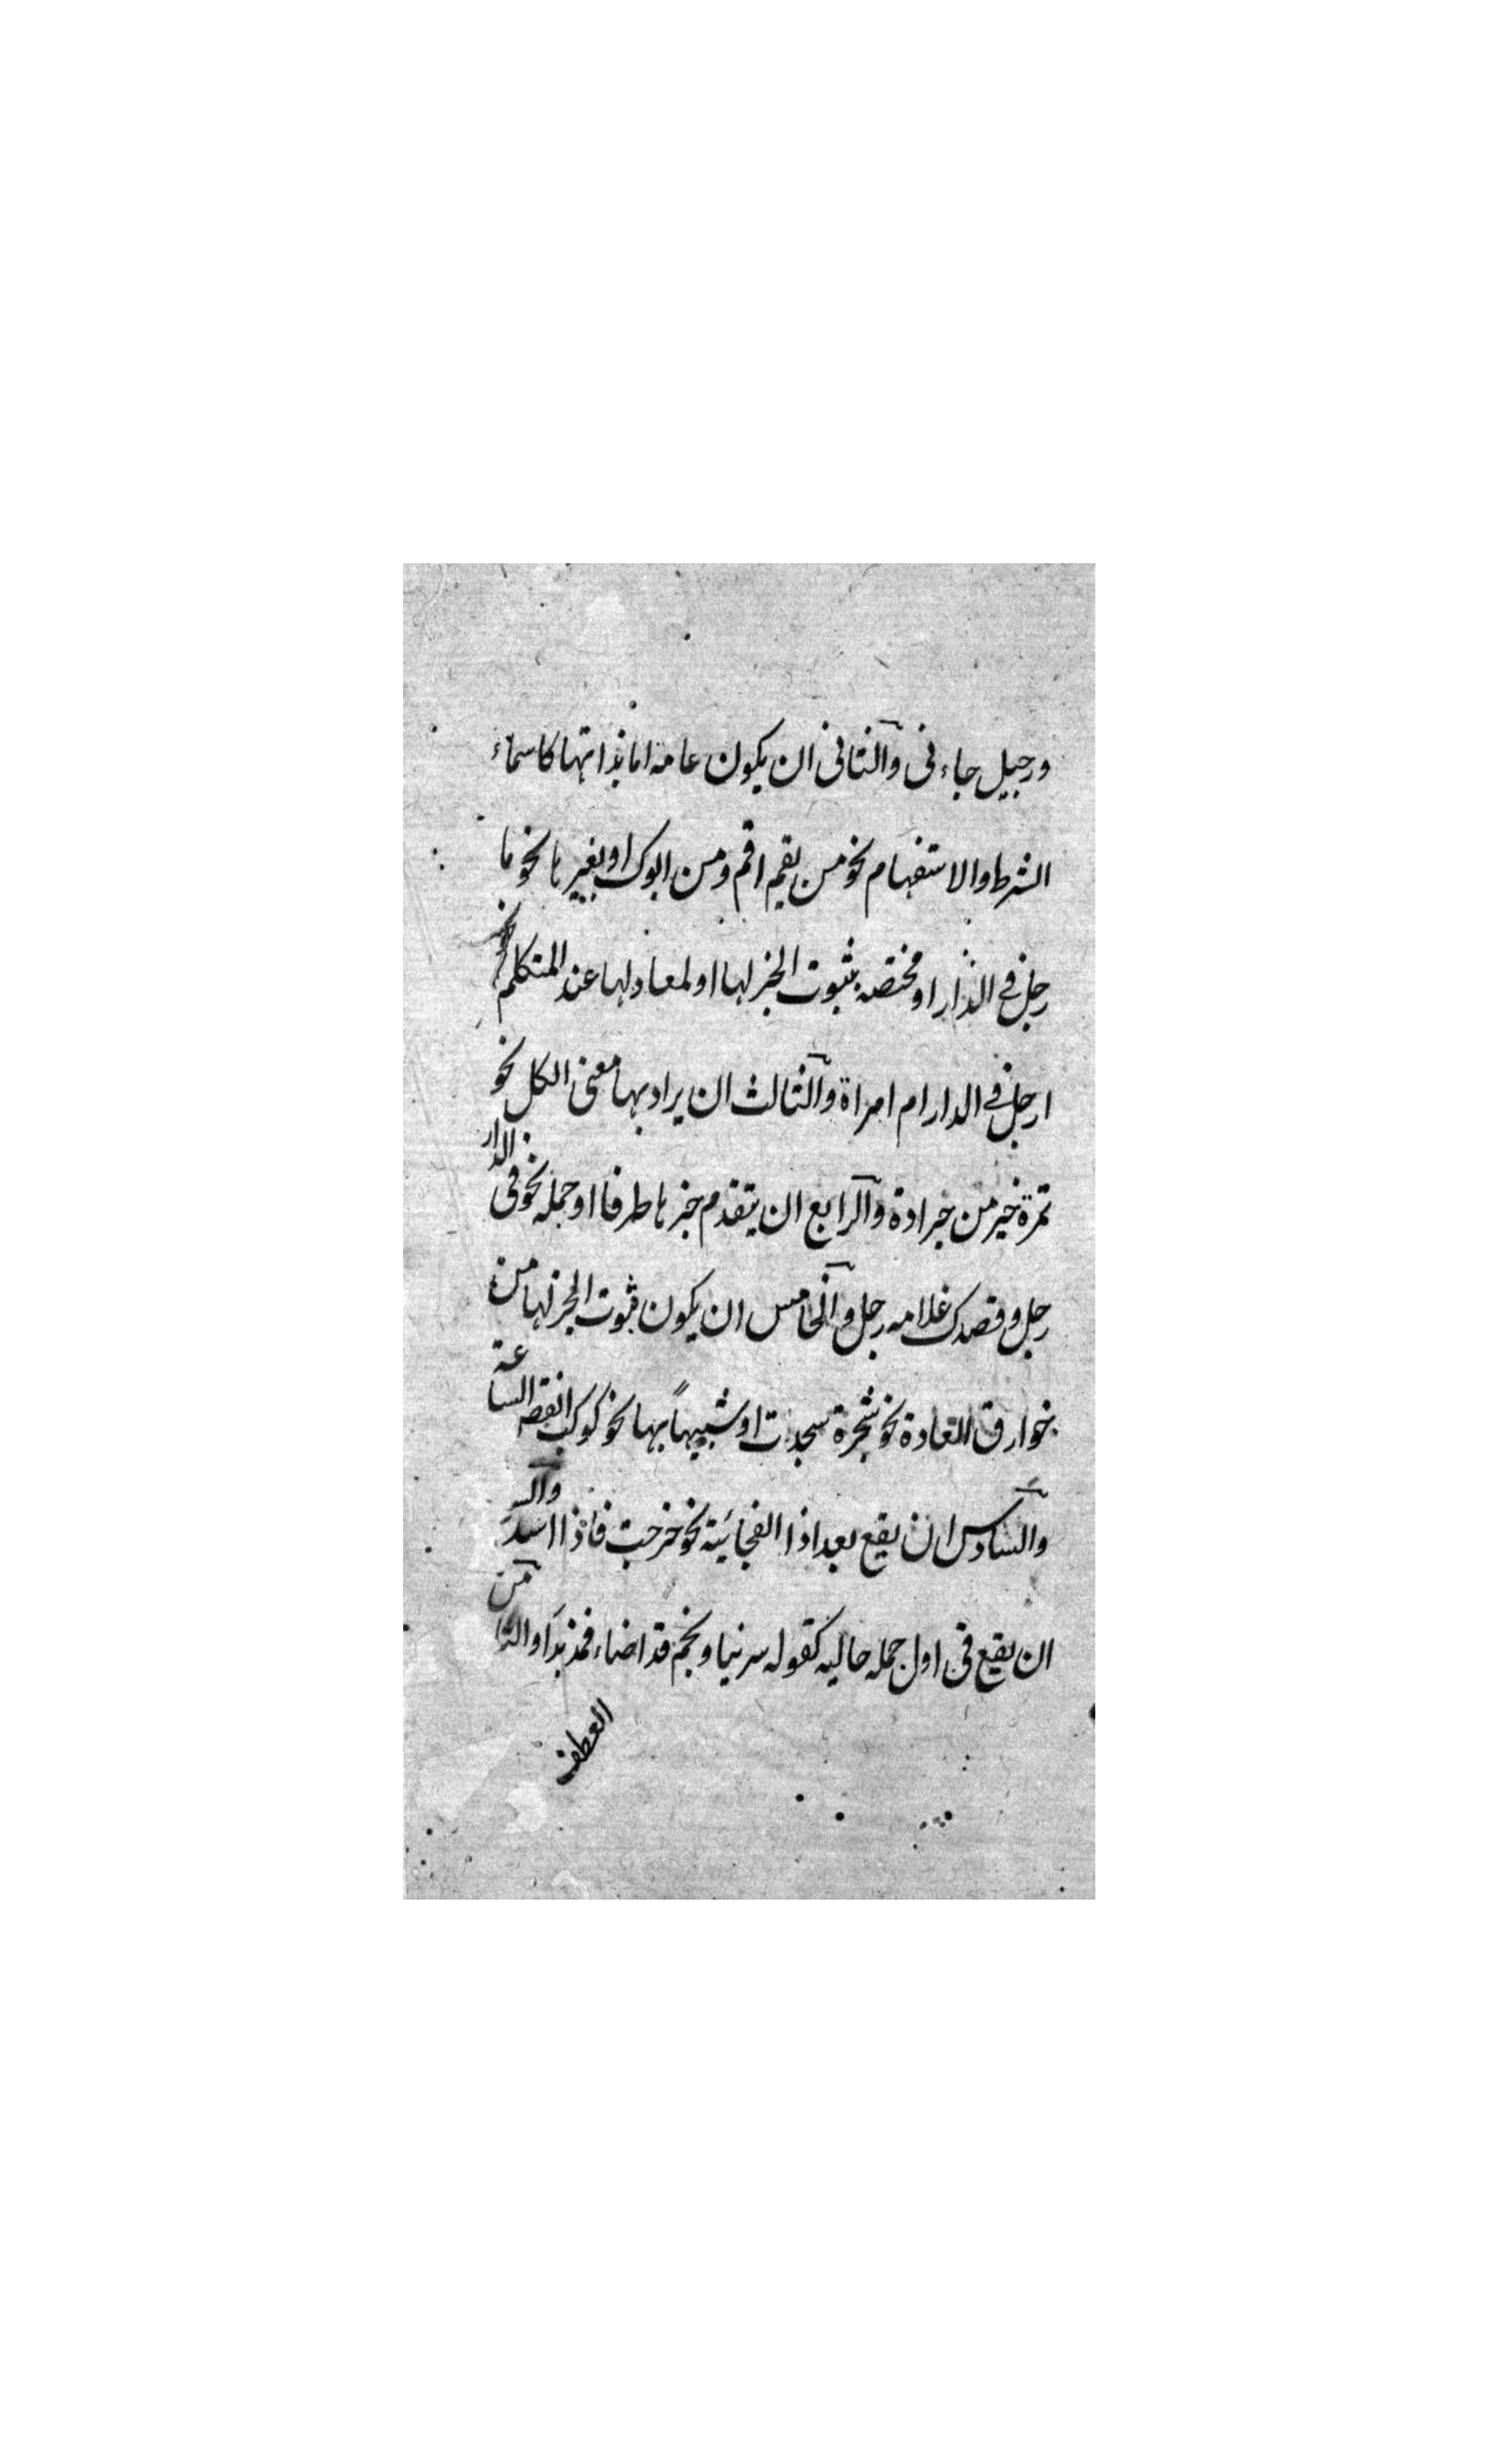 ورجيل جاءنى والثانى ان يكون عامه اما بذاتها كاسماء
الشرط والاستفهام نحو من يقم اقم ومن ابوك او بغيرها نحو ما
رجل فى الدار او مختصه بثبوت الخبر لها او لمعادلها عند المتكلم نحو
ارجل فى الدار ام امراة والثالث ان يراد بها معنى الكل نحو
تمرة خير من جرادة والرابع ان يتقدم خبرها ظرفا او جمله نحو فى الدار
رجل وقصدك غلامه رجل والخامس ان يكون ثبوت الخبر لها من
خوارق العادة نحو شجرة سجدت او شبيهاً بها نحو كوكب انقض الساعة
والسادس ان يقع بعد اذا الفجائية نحو خرجت فاذا اسد والسا
ان يقع فى اول جمله حاليه كقوله سرنيا ونجم قد اضاء فمذ بدا والثامن
العطف